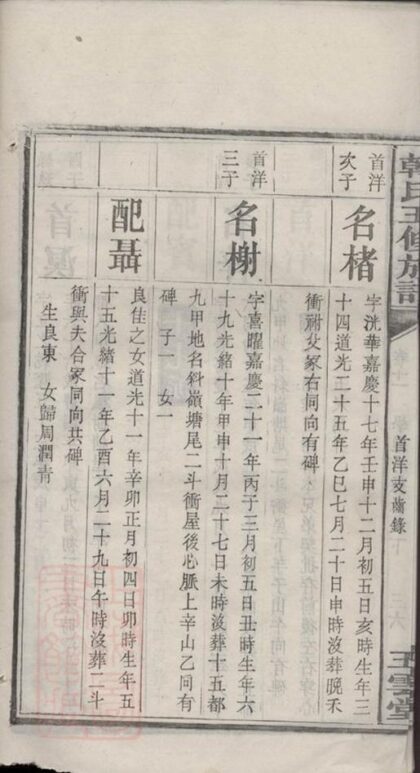 韓氏五修族譜
首洋支齒錄
五雲堂
首洋次子
名楮
字洸華嘉慶十七年壬申十二月初五日亥時生年三
十四道光二十五年乙巳七月二十日申時沒葬晚禾
衝祔父冢右同向有碑
首洋三子
名榭
字喜曜嘉慶二十一年丙子三月初五日丑時生年六
十九光緒十年甲申十月二十七日未時沒葬十五都
九甲地名斜嶺塘尾二斗衝屋後心脈上辛山乙向有
碑 子一 女一
配聶
良佳之女道光十一年辛卯正月初四日卯時生年五
十五光緒十一年乙酉六月二十九日午時沒葬二斗
衝與夫合冢同向共碑
生良東 女歸周潤青